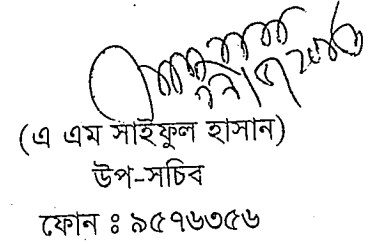 (এ এম সাইফুল হাসান)
উপ-সচিব
ফোন ঃ ৯৫৭৬৩৫৬